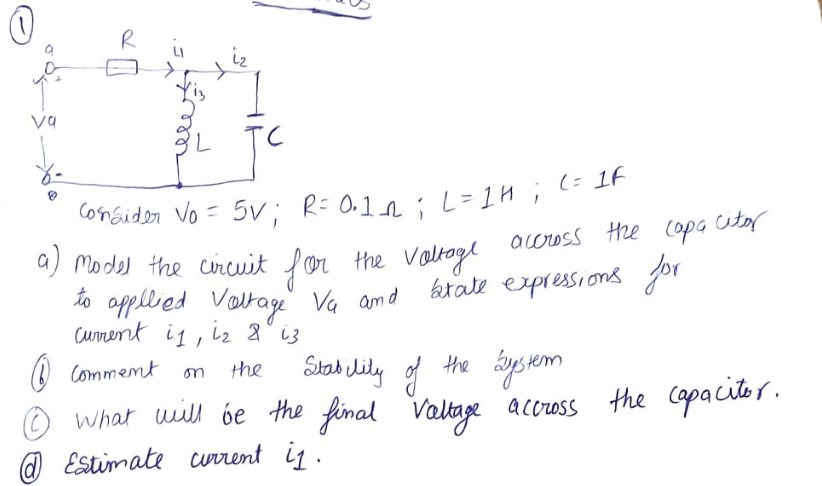 ①
R
i1
i2
a
+
i3
Va
L
C
-
Consider Vo = 5V ; R = 0.1Ω ; L = 1H ; C = 1F
a) Model the circuit for the Voltage accross the capacitor
to appllied Voltage Va and state expressions for
current i1, i2 & i3
ⓑ Comment on the Stability of the System
ⓒ What will be the final Valtage accross the capacitor.
ⓓ Estimate current i1.